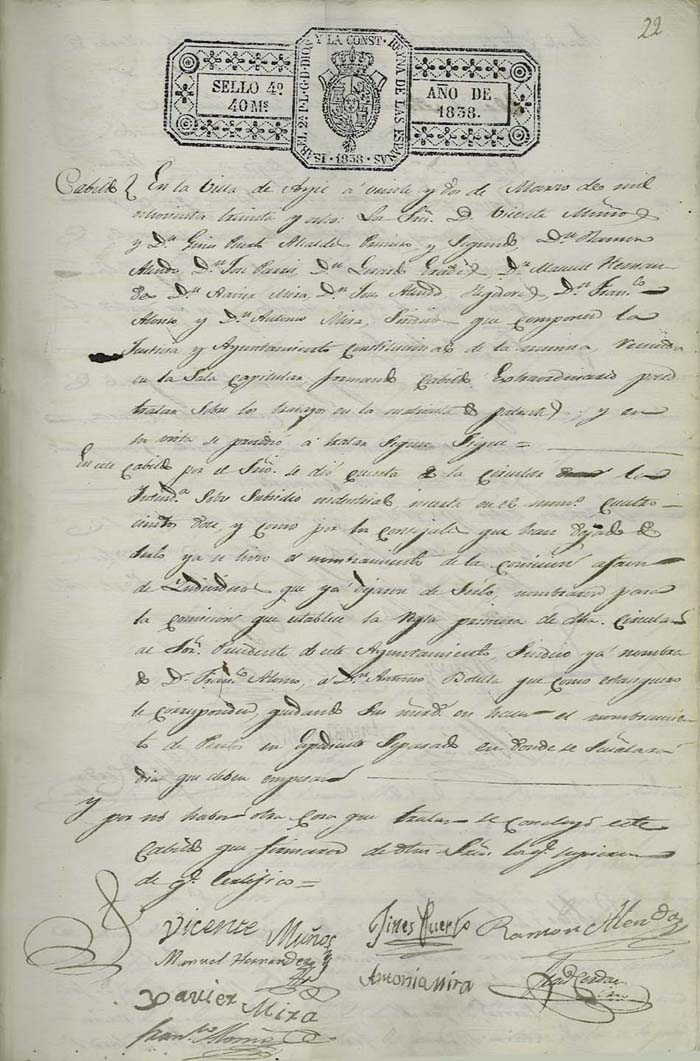 22
ISABEL 2ª P.L.G.D. DIOS Y LA CONST. REYNA DE LAS ESPAÑAS
SELLO 4º
40 Ms
AÑO DE
1838.
1838
Cabildo En la Villa de Aspe á veinte y dos de Marzo de mil
ochocientos treinta y ocho: Los Sres. D. Vicente Muñoz
y Dn. Gines Puerto Alcaldes Primero y Segundo Dn. Ramon
Dn. Jose Dn. Dn. Manuel Hernan
dez Dn. Xavier Mira, Dn. Jose Regidores Dn. Franco.
Alonso y Dn. Antonio Mira, que componen la
Justicia y Ayuntamiento Constitucional de la misma
en la Sala Capitular formando Cabildo Extraordinario para
tratar sobre los en la matricula de y en
la vista se á tratar segun sigue =
En este Cabildo por el se dió cuenta de la Circular la
Intenda. sobre Subsidio industrial, inserta en el numo. Cuatro-
cientos doce, y como por los concejales que han dejado de
serlo ya se hizo el nombramiento de la comision
de Individuos que ya dejaron de serlo, nombraron para
la comision que establece la regla primera de dha. Circular
al Sor. Presidente de este Ayuntamiento Sindico ya nombra
do Dn. Franco. Alonso, á Dn. Antonio Botella que como
le corresponde, quedando sus mrds. en hacer el nombramien
to de Peritos en espediente separado en donde se señalará
dia que deben empezar
Y por no haber otra cosa que tratar se concluyó este
Cabildo que firmaron de dhos Sres. los qe. supieron
de qe. Certifico =
Vicente Muñoz
Gines Puerto
Ramon
Manuel Hernandez
Antonio Mira
Xavier Mira